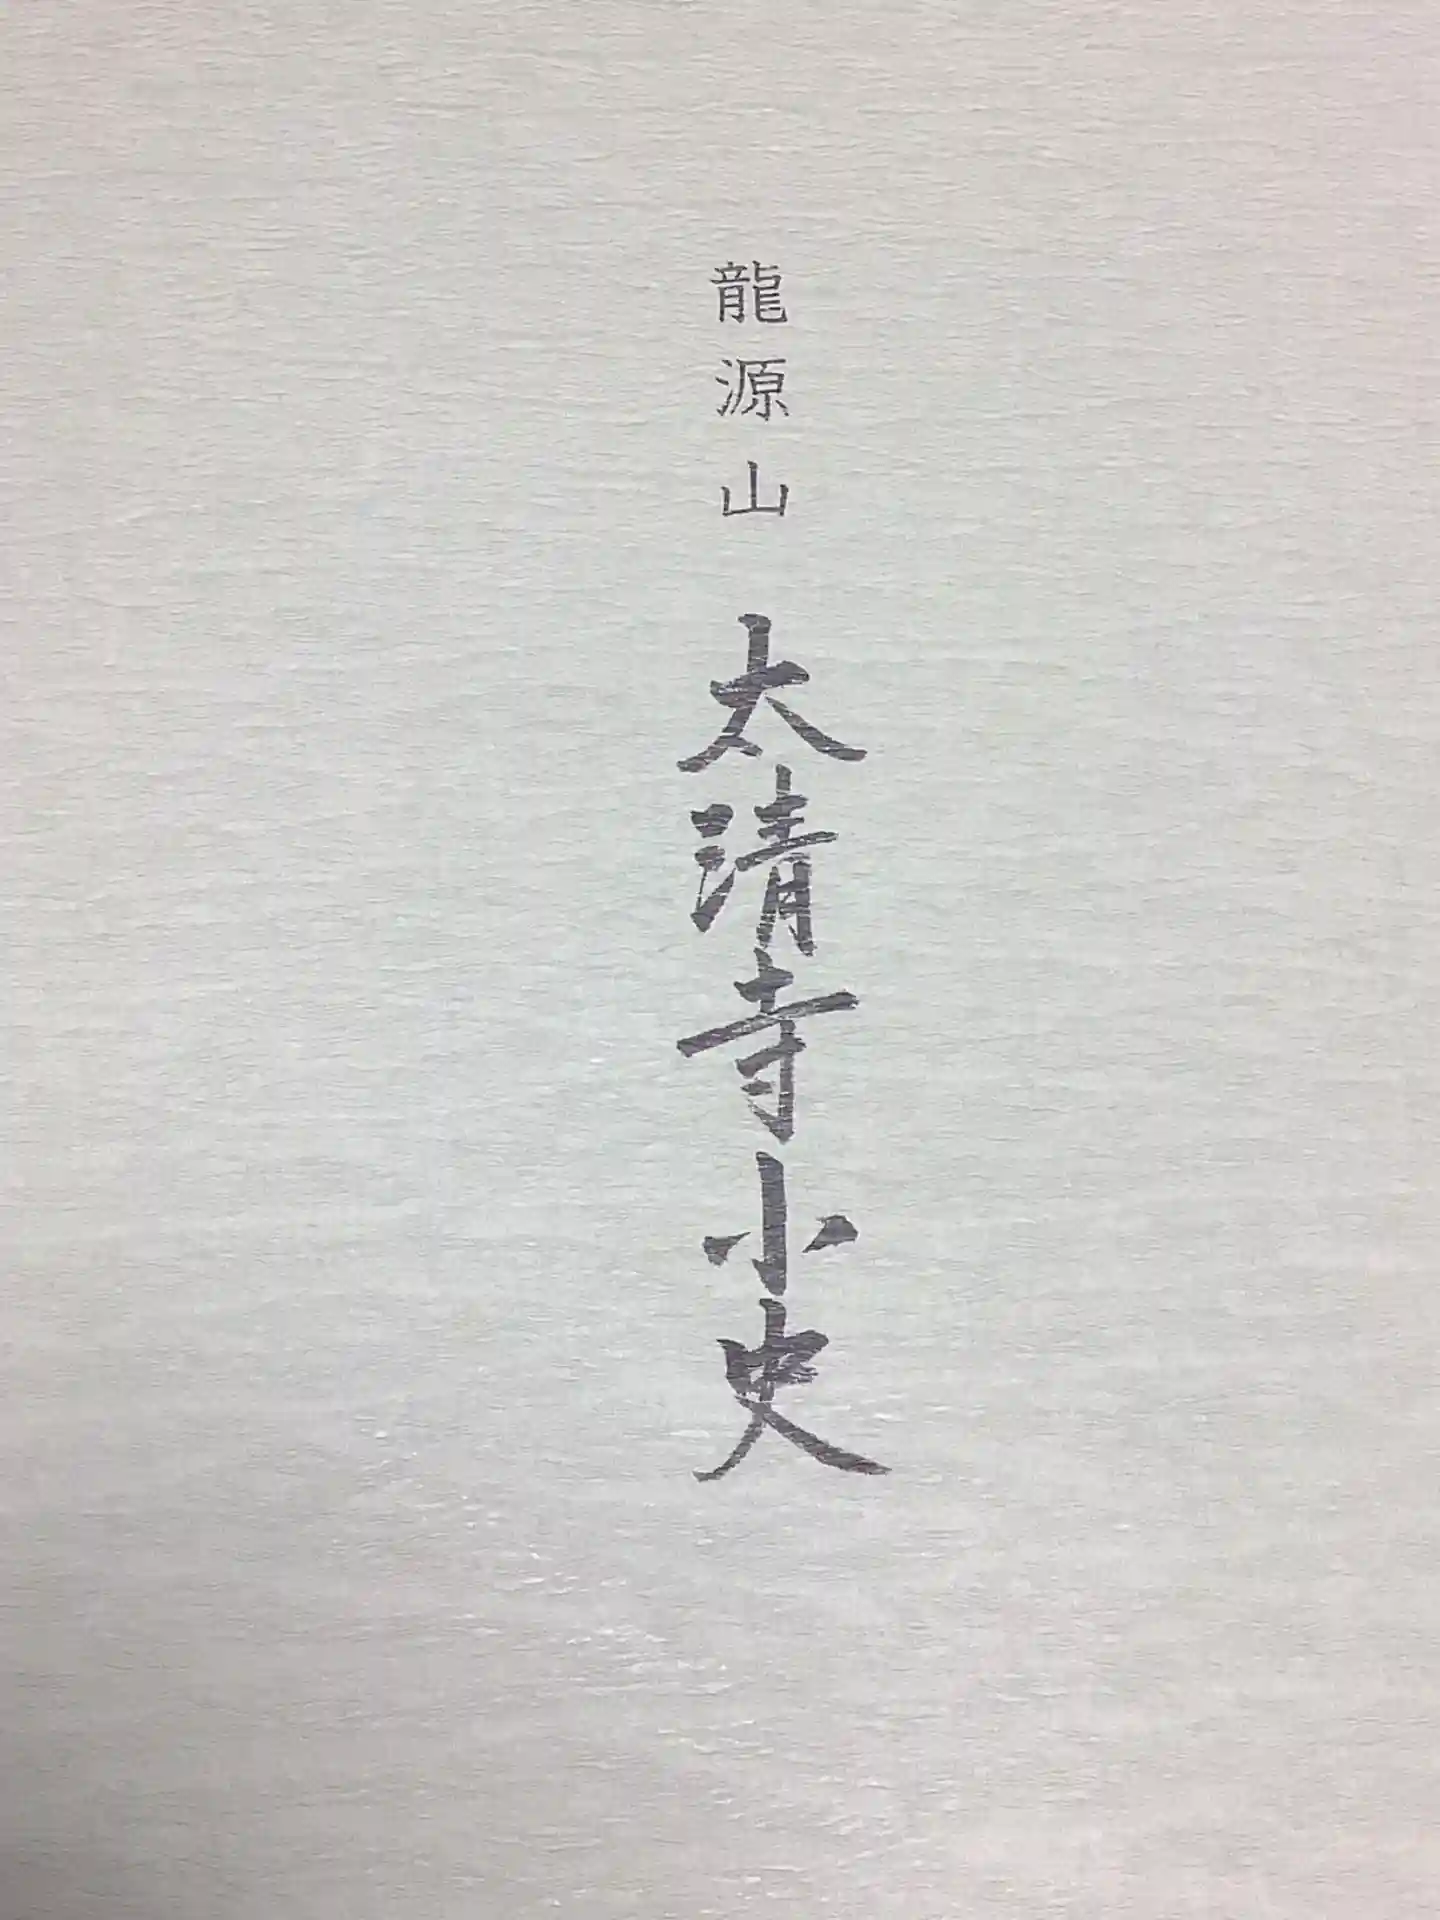 龍源山
太清寺小史